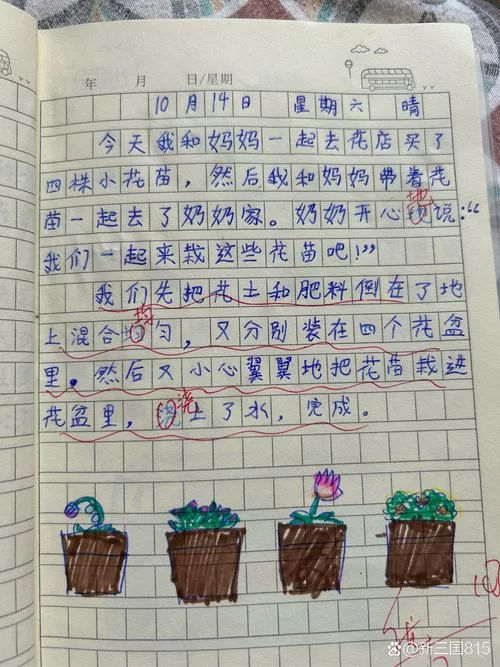 年 月 日/星期
10月14日 星期六 晴
今天我和妈妈一起去花店买了
四株小花苗，然后我和妈妈带着花
苗一起去了奶奶家。奶奶开心地说：“
我们一起来栽这些花苗吧！”
我们先把花土和肥料倒在了地
上混合均匀，又分别装在四个花盆
里。然后又小心翼翼地把花苗栽进
花盆里，浇上了水，完成。
@新三国815